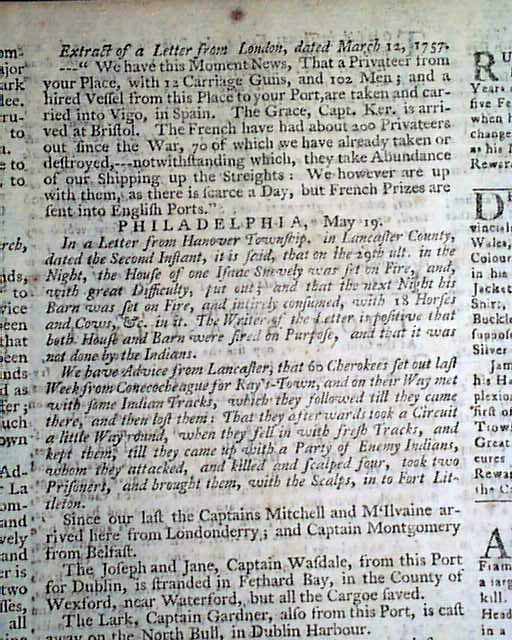 Extract of a Letter from London, dated March 12, 1757.
---"We have this Moment News, That a Privateer from
your Place, with 12 Carriage Guns, and 102 Men; and a
hired Vessel from this Place to your Port, are taken and car-
ried into Vigo, in Spain. The Grace, Capt. Ker. is arri-
ved at Bristol. The French have had about 200 Privateers
out since the War, 70 of which we have already taken or
destroyed,---notwithstanding which, they take Abundance
of our Shipping up the Streights: We however are up
with them, as there is scarce a Day, but French Prizes are
sent into English Ports."
PHILADELPHIA, May 19.
In a Letter from Hanover Township, in Lancaster County,
dated the Second Instant, it is said, that on the 29th ult. in the
Night, the House of one Isaac Snevely was set on Fire, and,
with great Difficulty, put out; and that the next Night his
Barn was set on Fire, and intirely consumed, with 18 Horses
and Cows, &c. in it. The Writer of the Letter is positive that
both House and Barn were fired on Purpose, and that it was
not done by the Indians.
We have Advice from Lancaster, that 60 Cherokees set out last
Week from Conecocheague for Ray's-Town, and on their Way met
with some Indian Tracks, which they followed till they came
there, and then lost them: That they afterwards took a Circuit
a little Way round, when they fell in with fresh Tracks, and
kept them, till they came up with a Party of Enemy Indians,
whom they attacked, and killed and scalped four, took two
Prisoners, and brought them, with the Scalps, in to Fort Lit-
tleton.
Since our last the Captains Mitchell and M'Ilvaine ar-
rived here from Londonderry; and Captain Montgomery
from Belfast.
The Joseph and Jane, Captain Wasdale, from this Port
for Dublin, is stranded in Fethard Bay, in the County of
Wexford, near Waterford, but all the Cargoe saved.
The Lark, Captain Gardner, also from this Port, is cast
away on the North Bull, in Dublin Harbour.